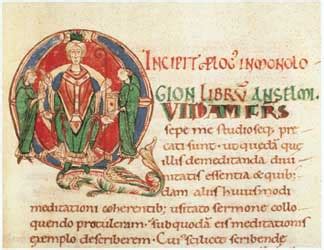 INCIPIT PLOG' IN MONOLO
GION LIBRV̄ ANSELMI.
QVIDAM FRS
sepe me studioseq; pre
cati sunt. ut quedā que
illis de meditanda divi
nitatis essentia & quib;
dam aliis huiusmodi
meditationi coherentib; usitato sermone collo
quendo protuleram. sub quodā eis meditationis
exemplo describerem. Cui' scilicet scribende